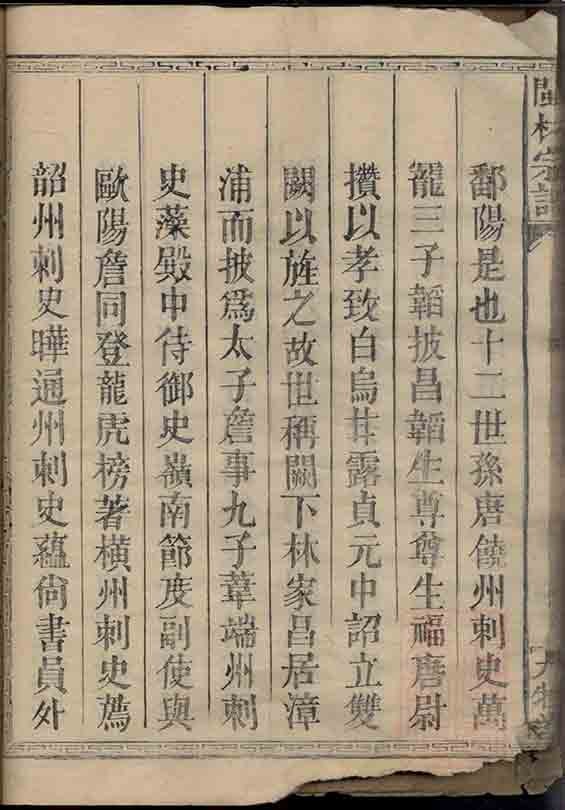 閩林宗譜
鄱陽是也十二世孫唐饒州刺史萬
寵三子韜披昌韜生尊尊生福唐尉
攢以孝致白烏甘露貞元中詔立雙
闕以旌之故世稱闕下林家昌居漳
浦而披爲太子詹事九子葦端州刺
史藻殿中侍御史嶺南節度副使與
歐陽詹同登龍虎榜著橫州刺史薦
韶州刺史曄通州刺史蘊尙書員外